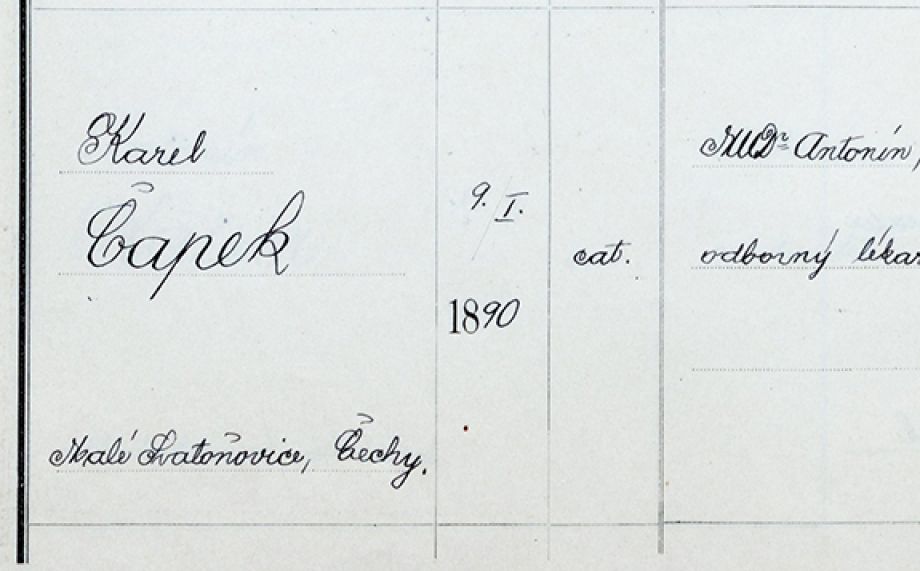 Karel
Čapek
Malé Svatoňovice, Čechy.
9. I.
1890
cat.
MUDr Antonín,
odborný lékař